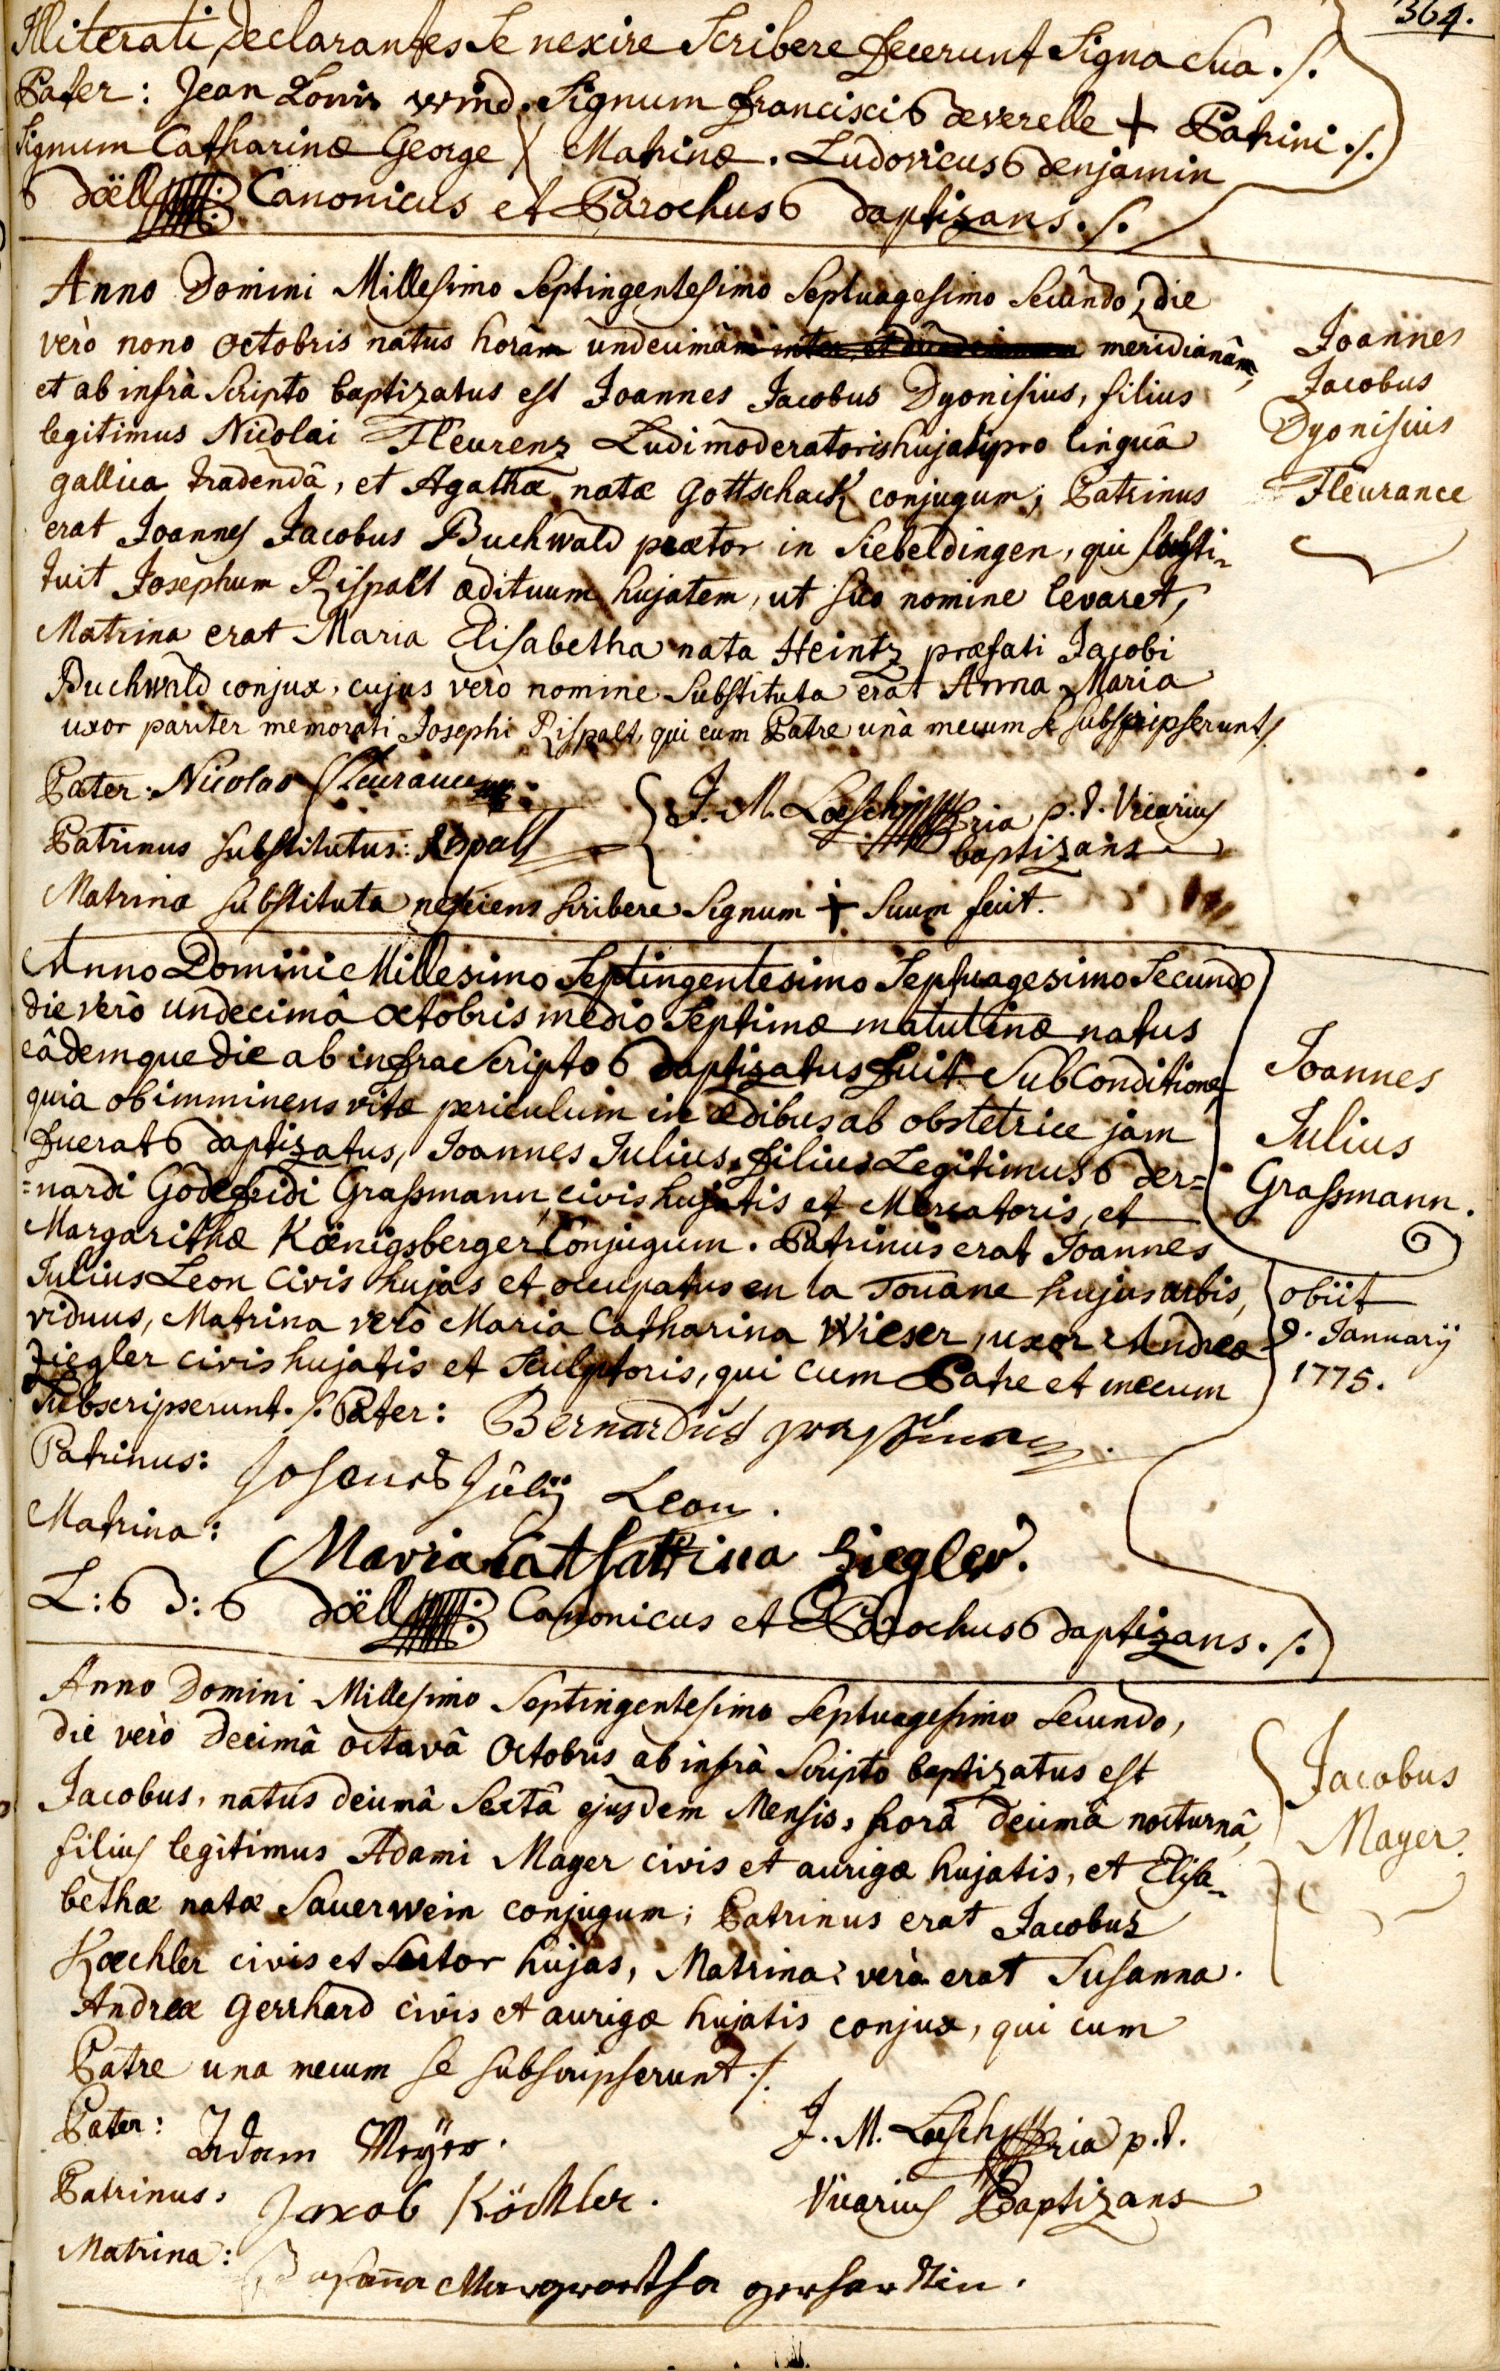 364.
Illiterati, declarantes se nexire scribere fecerunt signa sua ./.
Pater: Jean Louis wind. Signum francisci Beverelle + Patrini ./.
Signum Catharinæ George } Matrinæ. Ludovicus Benjamin
Böell Canonicus et Parochus Baptizans ./.
Anno Domini Millesimo Septingentesimo Septuagesimo Secundo, die
verò nono octobris natus horâm undecimâm meridianâm,
et ab infrà scripto baptizatus est Joannes Jacobus Dyonisius, filius
legitimus Nicolai Fleurenz Ludimoderatoris hujatis pro linguâ
gallica tradendâ, et Agathæ natæ Gottschack conjugum; Patrinus
erat Joannes Jacobus Buchwald prætor in Siebeldingen, qui substi-
tuit Josephum Rispalt ædituum hujatem, ut suo nomine levaret,
Matrina erat Maria Elisabetha nata Heintz præfati Jacobi
Buchwald conjux, cujus verò nomine substituta erat Anna Maria
uxor pariter memorati Josephi Rispalt, qui cum Patre unà mecum se subscripserunt ./.
Joannes
Jacobus
Dyonisius
Fleurance
Pater: Nicolas fleurance
Patrinus substitutus: Rispalt
J. M. Loesch p.t. Vicarius
baptizans
Matrina substituta nesciens scribere signum + suum fecit.
Anno Domini Millesimo Septingentesimo Septuagesimo Secundo
die verò undecimâ octobris medio Septimæ matutinæ natus
eâdemque die ab infrae scripto Baptizatus fuit sub conditione,
quia ob imminens vitæ periculum in ædibus ab obstetrice jam
fuerat Baptizatus, Joannes Julius, filius Legitimus Ber=
=nardi Godefridi Graßmann, civis hujatis et Mercatoris, et
Margarithæ Kœnigsberger Conjugum. Patrinus erat Joannes
Julius Leon Civis hujas et occupatus en la Touane hujus urbis,
viduus, Matrina verò Maria Catharina Wieser, uxor Andreæ
Ziegler civis hujatis et sculptoris, qui cum Patre et mecum
subscripserunt ./. Pater: Bernardus
Joannes
Julius
Graßmann.
obiit
9. Januarij
1775.
Patrinus: Julij Leon.
Matrina: Maria Catharina Ziegler.
L: B: Böell Canonicus et Parochus Baptizans ./.
Anno Domini Millesimo Septingentesimo Septuagesimo Secundo,
die verò decimâ octavâ Octobris ab infrà scripto baptizatus est
Jacobus, natus decimâ sextâ ejusdem Mensis, horâ decimâ nocturnâ,
filius legitimus Adami Mayer civis et aurigæ hujatis, et Elisa-
bethæ natæ Sauerwein conjugum; Patrinus erat Jacobus
Kœchler civis et sartor hujas, Matrina verò erat Susanna
Andreæ Gerrhard civis et aurigæ hujatis conjux, qui cum
Patre una mecum se subscripserunt ./.
Jacobus
Mayer.
Pater: Adam Meÿer.
J. M. Loesch p.t.
Patrinus: Jaxob Köchler.
Vicarius Baptizans
Matrina: Susanna Margaretha gerhardtin.